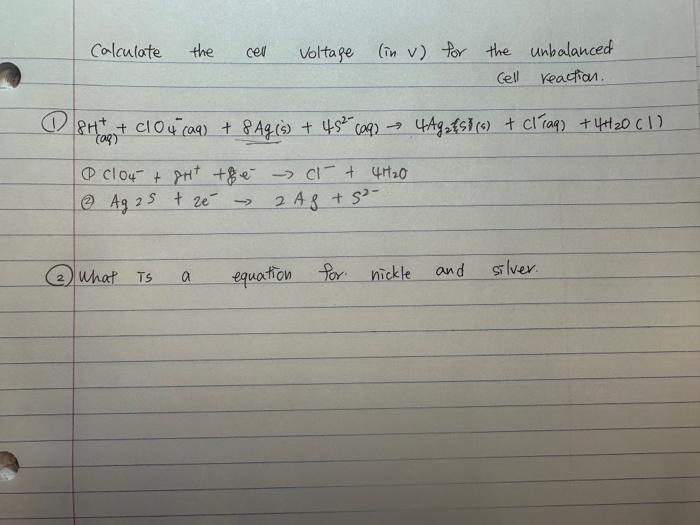 Calculate the cell voltage (in V) for the unbalanced
Cell reaction.
① 8H⁺(aq) + ClO4⁻(aq) + 8Ag(s) + 4S²⁻(aq) → 4Ag2S(s) + Cl⁻(aq) + 4H2O(l)
① ClO4⁻ + 8H⁺ + 8e⁻ → Cl⁻ + 4H2O
② Ag2S + 2e⁻ → 2Ag + S²⁻
② What is a equation for nickle and silver.